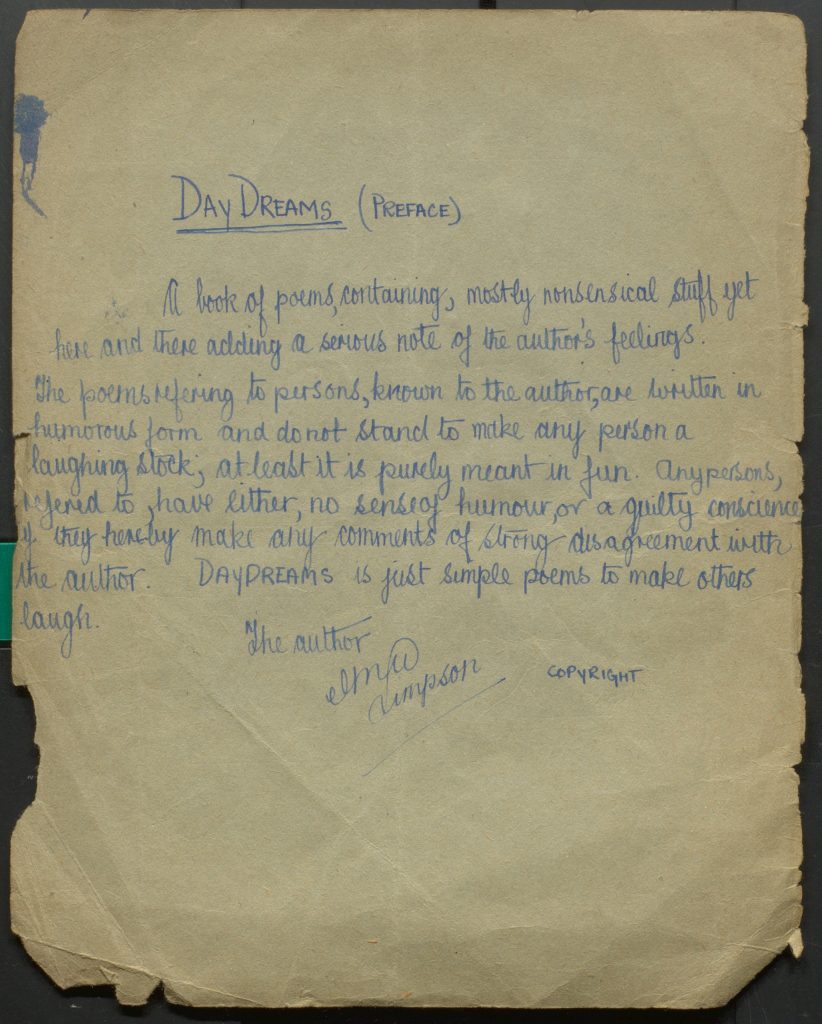 DAY DREAMS (PREFACE)
A book of poems, containing, mostly nonsensical stuff yet
here and there adding a serious note of the author's feelings.
The poems refering to persons, known to the author, are written in
humorous form and do not stand to make any person a
laughing stock, at least it is purely meant in fun. Any persons,
refered to, have either, no sense of humour, or a guilty conscience
if they hereby make any comments of strong disagreement with
the author. DAYDREAMS is just simple poems to make others
laugh.
The author
Simpson
COPYRIGHT